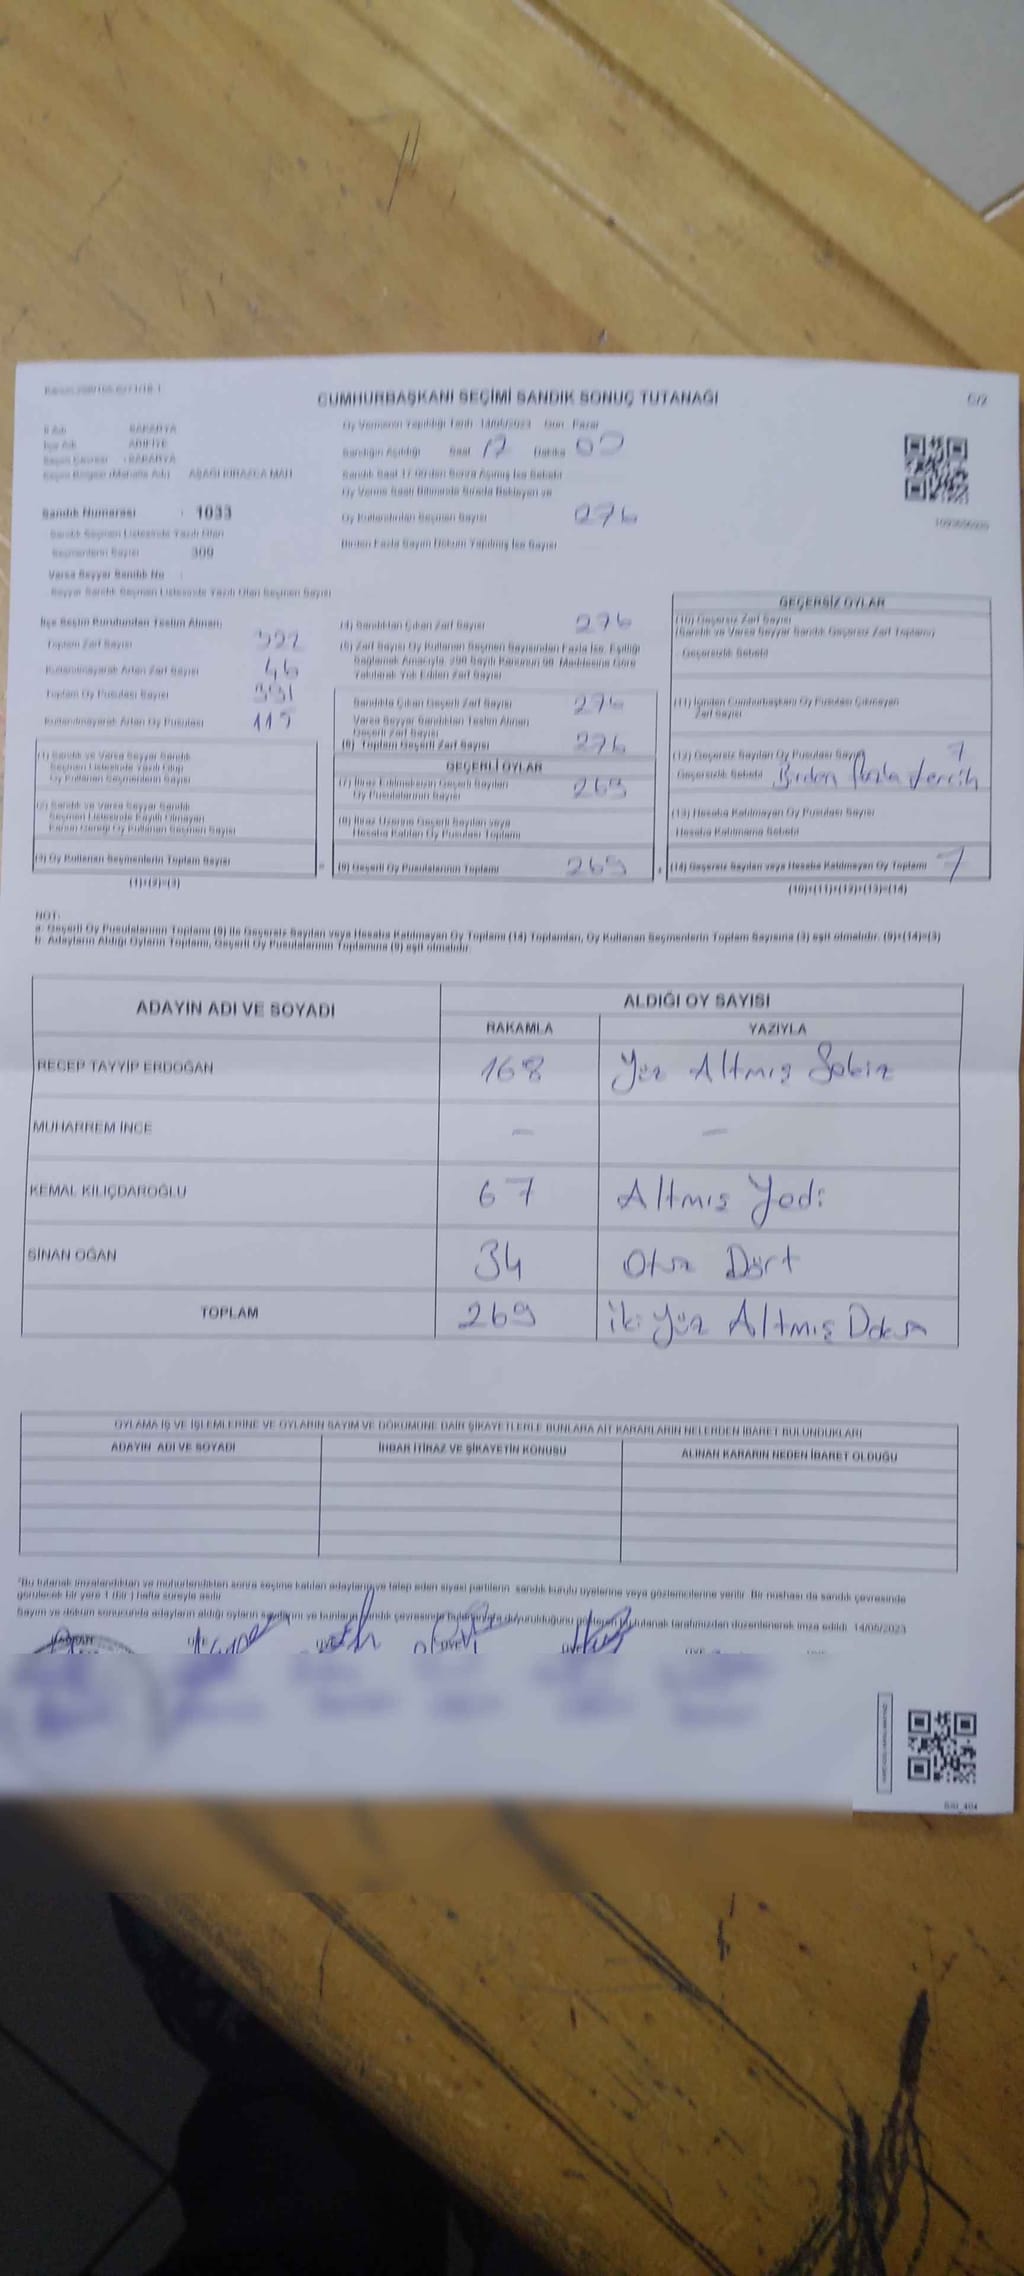 CUMHURBAŞKANI SEÇİMİ SANDIK SONUÇ TUTANAĞI
C/2
İl Adı : SAKARYA
İlçe Adı : ARİFİYE
Seçim Çevresi : SAKARYA
Seçim Bölgesi (Mahalle Adı) : AŞAĞI KİRAZCA MAH.
Sandık Numarası : 1033
Sandık Seçmen Listesinde Yazılı Olan
Seçmenlerin Sayısı : 309
Varsa Seyyar Sandık No :
Seyyar Sandık Seçmen Listesinde Yazılı Olan Seçmen Sayısı
Oy Vermenin Yapıldığı Tarih 14/05/2023 Gün Pazar
Sandığın Açıldığı Saat 17 Dakika 00
Sandık Saat 17.00'den Sonra Açılmış İse Sebebi
Oy Verme Saati Bitiminde Sırada Bekleyen ve
Oy Kullandırılan Seçmen Sayısı 276
Birden Fazla Sayım Döküm Yapılmış İse Sayısı
İlçe Seçim Kurulundan Teslim Alınan;
Toplam Zarf Sayısı 322
Kullanılmayarak Artan Zarf Sayısı 46
Toplam Oy Pusulası Sayısı 391
Kullanılmayarak Artan Oy Pusulası 115
(1) Sandık ve Varsa Seyyar Sandık
Seçmen Listesinde Yazılı Olup
Oy Kullanan Seçmenlerin Sayısı
(2) Sandık ve Varsa Seyyar Sandık
Seçmen Listesinde Kayıtlı Olmayan
Kanun Gereği Oy Kullanan Seçmen Sayısı
(3) Oy Kullanan Seçmenlerin Toplam Sayısı
(1)+(2)=(3)
(4) Sandıktan Çıkan Zarf Sayısı 276
(5) Zarf Sayısı Oy Kullanan Seçmen Sayısından Fazla İse, Eşitliği
Sağlamak Amacıyla, 298 Sayılı Kanunun 98. Maddesine Göre
Yakılarak Yok Edilen Zarf Sayısı
Sandıkta Çıkan Geçerli Zarf Sayısı 276
Varsa Seyyar Sandıktan Teslim Alınan
Geçerli Zarf Sayısı
(6) Toplam Geçerli Zarf Sayısı 276
GEÇERLİ OYLAR
(7) İtiraz Edilmeksizin Geçerli Sayılan
Oy Pusulalarının Sayısı 269
(8) İtiraz Üzerine Geçerli Sayılan veya
Hesaba Katılan Oy Pusulası Toplamı
(9) Geçerli Oy Pusulalarının Toplamı 269
GEÇERSİZ OYLAR
(10) Geçersiz Zarf Sayısı
(Sandık ve Varsa Seyyar Sandık Geçersiz Zarf Toplamı)
Geçersizlik Sebebi
(11) İçinden Cumhurbaşkanı Oy Pusulası Çıkmayan
Zarf Sayısı
(12) Geçersiz Sayılan Oy Pusulası Sayısı 7
Geçersizlik Sebebi Birden fazla tercih
(13) Hesaba Katılmayan Oy Pusulası Sayısı
Hesaba Katılmama Sebebi
(14) Geçersiz Sayılan veya Hesaba Katılmayan Oy Toplamı 7
(10)+(11)+(12)+(13)=(14)
NOT:
a- Geçerli Oy Pusulalarının Toplamı (9) ile Geçersiz Sayılan veya Hesaba Katılmayan Oy Toplamı (14) Toplamları, Oy Kullanan Seçmenlerin Toplam Sayısına (3) eşit olmalıdır. (9)+(14)=(3)
b- Adayların Aldığı Oyların Toplamı, Geçerli Oy Pusulalarının Toplamına (9) eşit olmalıdır.
ADAYIN ADI VE SOYADI
ALDIĞI OY SAYISI
RAKAMLA YAZIYLA
RECEP TAYYİP ERDOĞAN 168 Yüz Altmış Sekiz
MUHARREM İNCE - -
KEMAL KILIÇDAROĞLU 67 Altmış Yedi
SİNAN OĞAN 34 Otuz Dört
TOPLAM 269 İki Yüz Altmış Dokuz
OYLAMA İŞ VE İŞLEMLERİNE VE OYLARIN SAYIM VE DÖKÜMÜNE DAİR ŞİKAYETLERLE BUNLARA AİT KARARLARIN NELERDEN İBARET BULUNDUKLARI
ADAYIN ADI VE SOYADI
İHBAR İTİRAZ VE ŞİKAYETİN KONUSU
ALINAN KARARIN NEDEN İBARET OLDUĞU
*Bu tutanak imzalandıktan ve mühürlendikten sonra seçime katılan adayların ve talep eden siyasi partilerin sandık kurulu üyelerine veya gözlemcilerine verilir. Bir nüshası da sandık çevresinde
görülecek bir yere 1 (bir) hafta süreyle asılır.
Sayım ve döküm sonucunda adayların aldığı oyların sayılarını ve bunların sandık çevresinde
tutanak tarafımızdan düzenlenerek imza edildi. 14/05/2023
BAŞKAN ÜYE ÜYE ÜYE ÜYE ÜYE